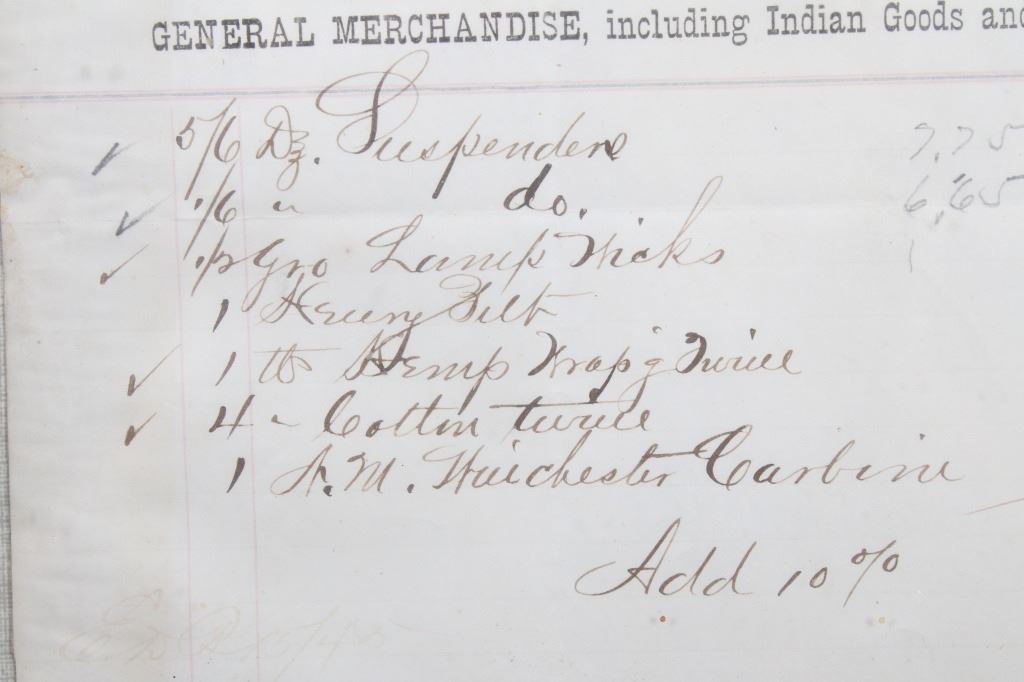 GENERAL MERCHANDISE, including Indian Goods and
5/6 Dz. Suspenders 7.75
1/6 " do. 6.65
1/2 Gro Lamp Wicks 1
1 Henry Filt
1 lb Hemp Wrap'g Twine
4 " Cotton twine
1 H.M. Winchester Carbine
Add 10 %